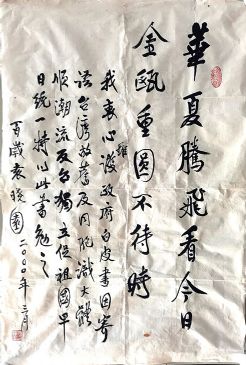 華夏騰飛看今日
金甌重圓不待時
我衷心擁護政府白皮書因寄
語台灣故舊及同胞識大體
順潮流反台獨立促祖國早
日統一特以此書勉之
百歲袁晓園 二〇〇〇年 三月